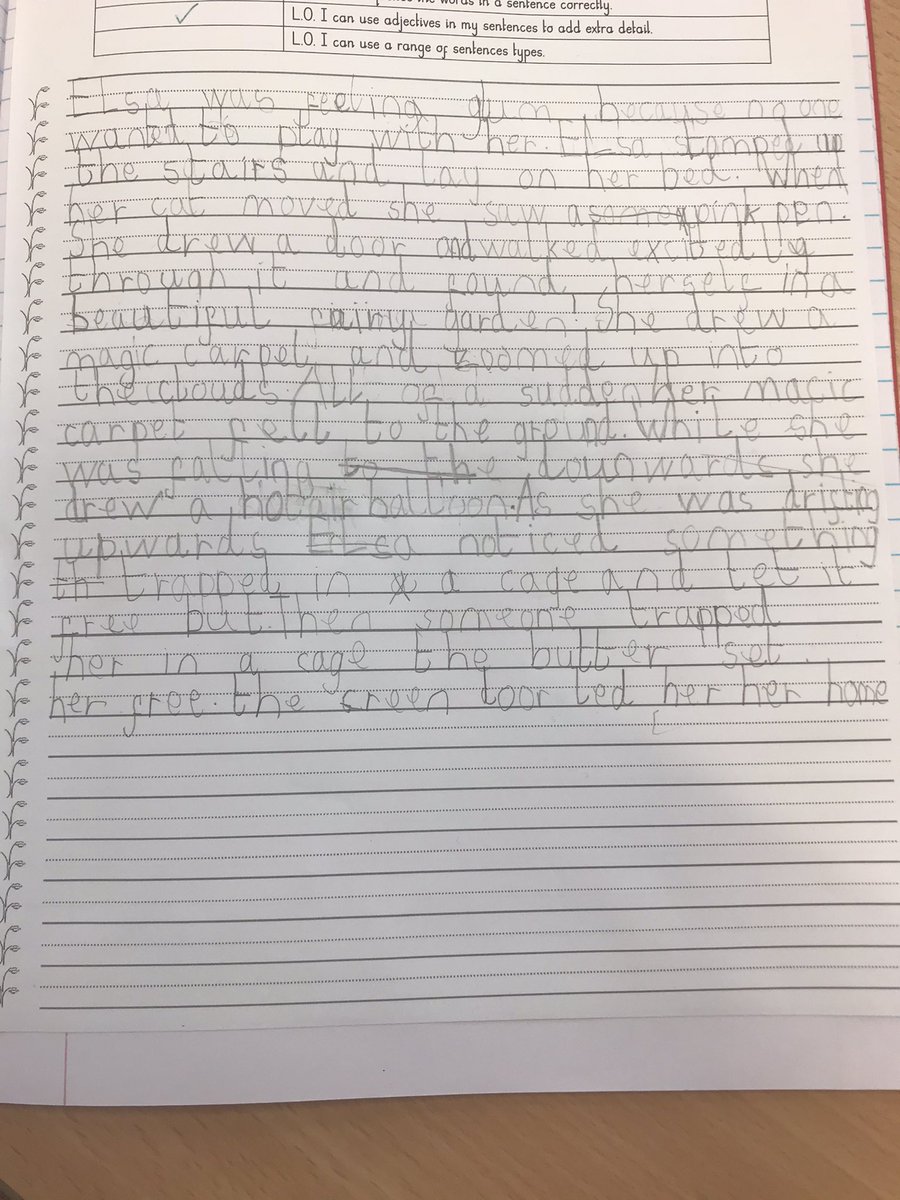 words in a sentence correctly.
✓ L.O. I can use adjectives in my sentences to add extra detail.
L.O. I can use a range of sentences types.
Elsa was feeling glum because no one
wanted to play with her. Elsa stomped up
the stairs and lay on her bed. When
her cat moved she saw a some pink pen.
She drew a door and walked excitedly
through it and found herself in a
beautiful fairy garden. She drew a
magic carpet and zoomed up into
the clouds. All of a sudden her magic
carpet fell to the ground. While she
was falling to the downwards she
drew a hot air balloon. As she was drifting
upwards Elsa noticed something
in trapped in a cage and let it
free but. Then someone trapped
her in a cage the butter set
her free. the green door led her her home